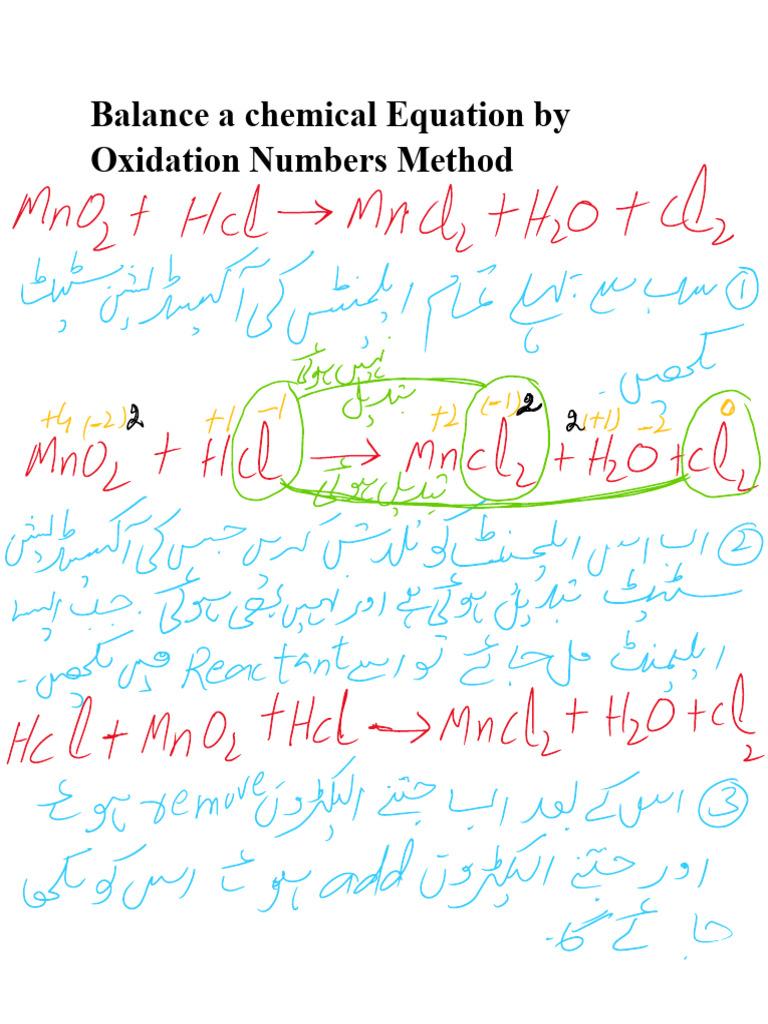 Balance a chemical Equation by
Oxidation Numbers Method
MnO₂ + Hcl → Mncl₂ + H₂O + cl₂
① سب سے پہلے تمام ایلیمنٹس کی آکسیڈیشن سٹیٹ
لکھیں۔
نہیں ہوئی
تبدیل
+4 (-2)2 +1 -1 +2 (-1)2 2(+1) -2 0
MnO₂ + Hcl → Mncl₂ + H₂O + cl₂
تبدیل ہوئی
② اب اس ایلیمنٹ کو تلاش کریں جس کی آکسیڈیشن
سٹیٹ تبدیل ہوئی ہے اور نہیں بھی ہوئی۔ جب ایسا
ایلیمنٹ مل جائے تو اسے Reactant میں لکھیں۔
Hcl + MnO₂ + Hcl → Mncl₂ + H₂O + cl₂
③ اس کے بعد اب جتنے الیکٹرون remove ہوئے
اور جتنے الیکٹرون add ہوئے اس کو لکھا
جائے گا۔